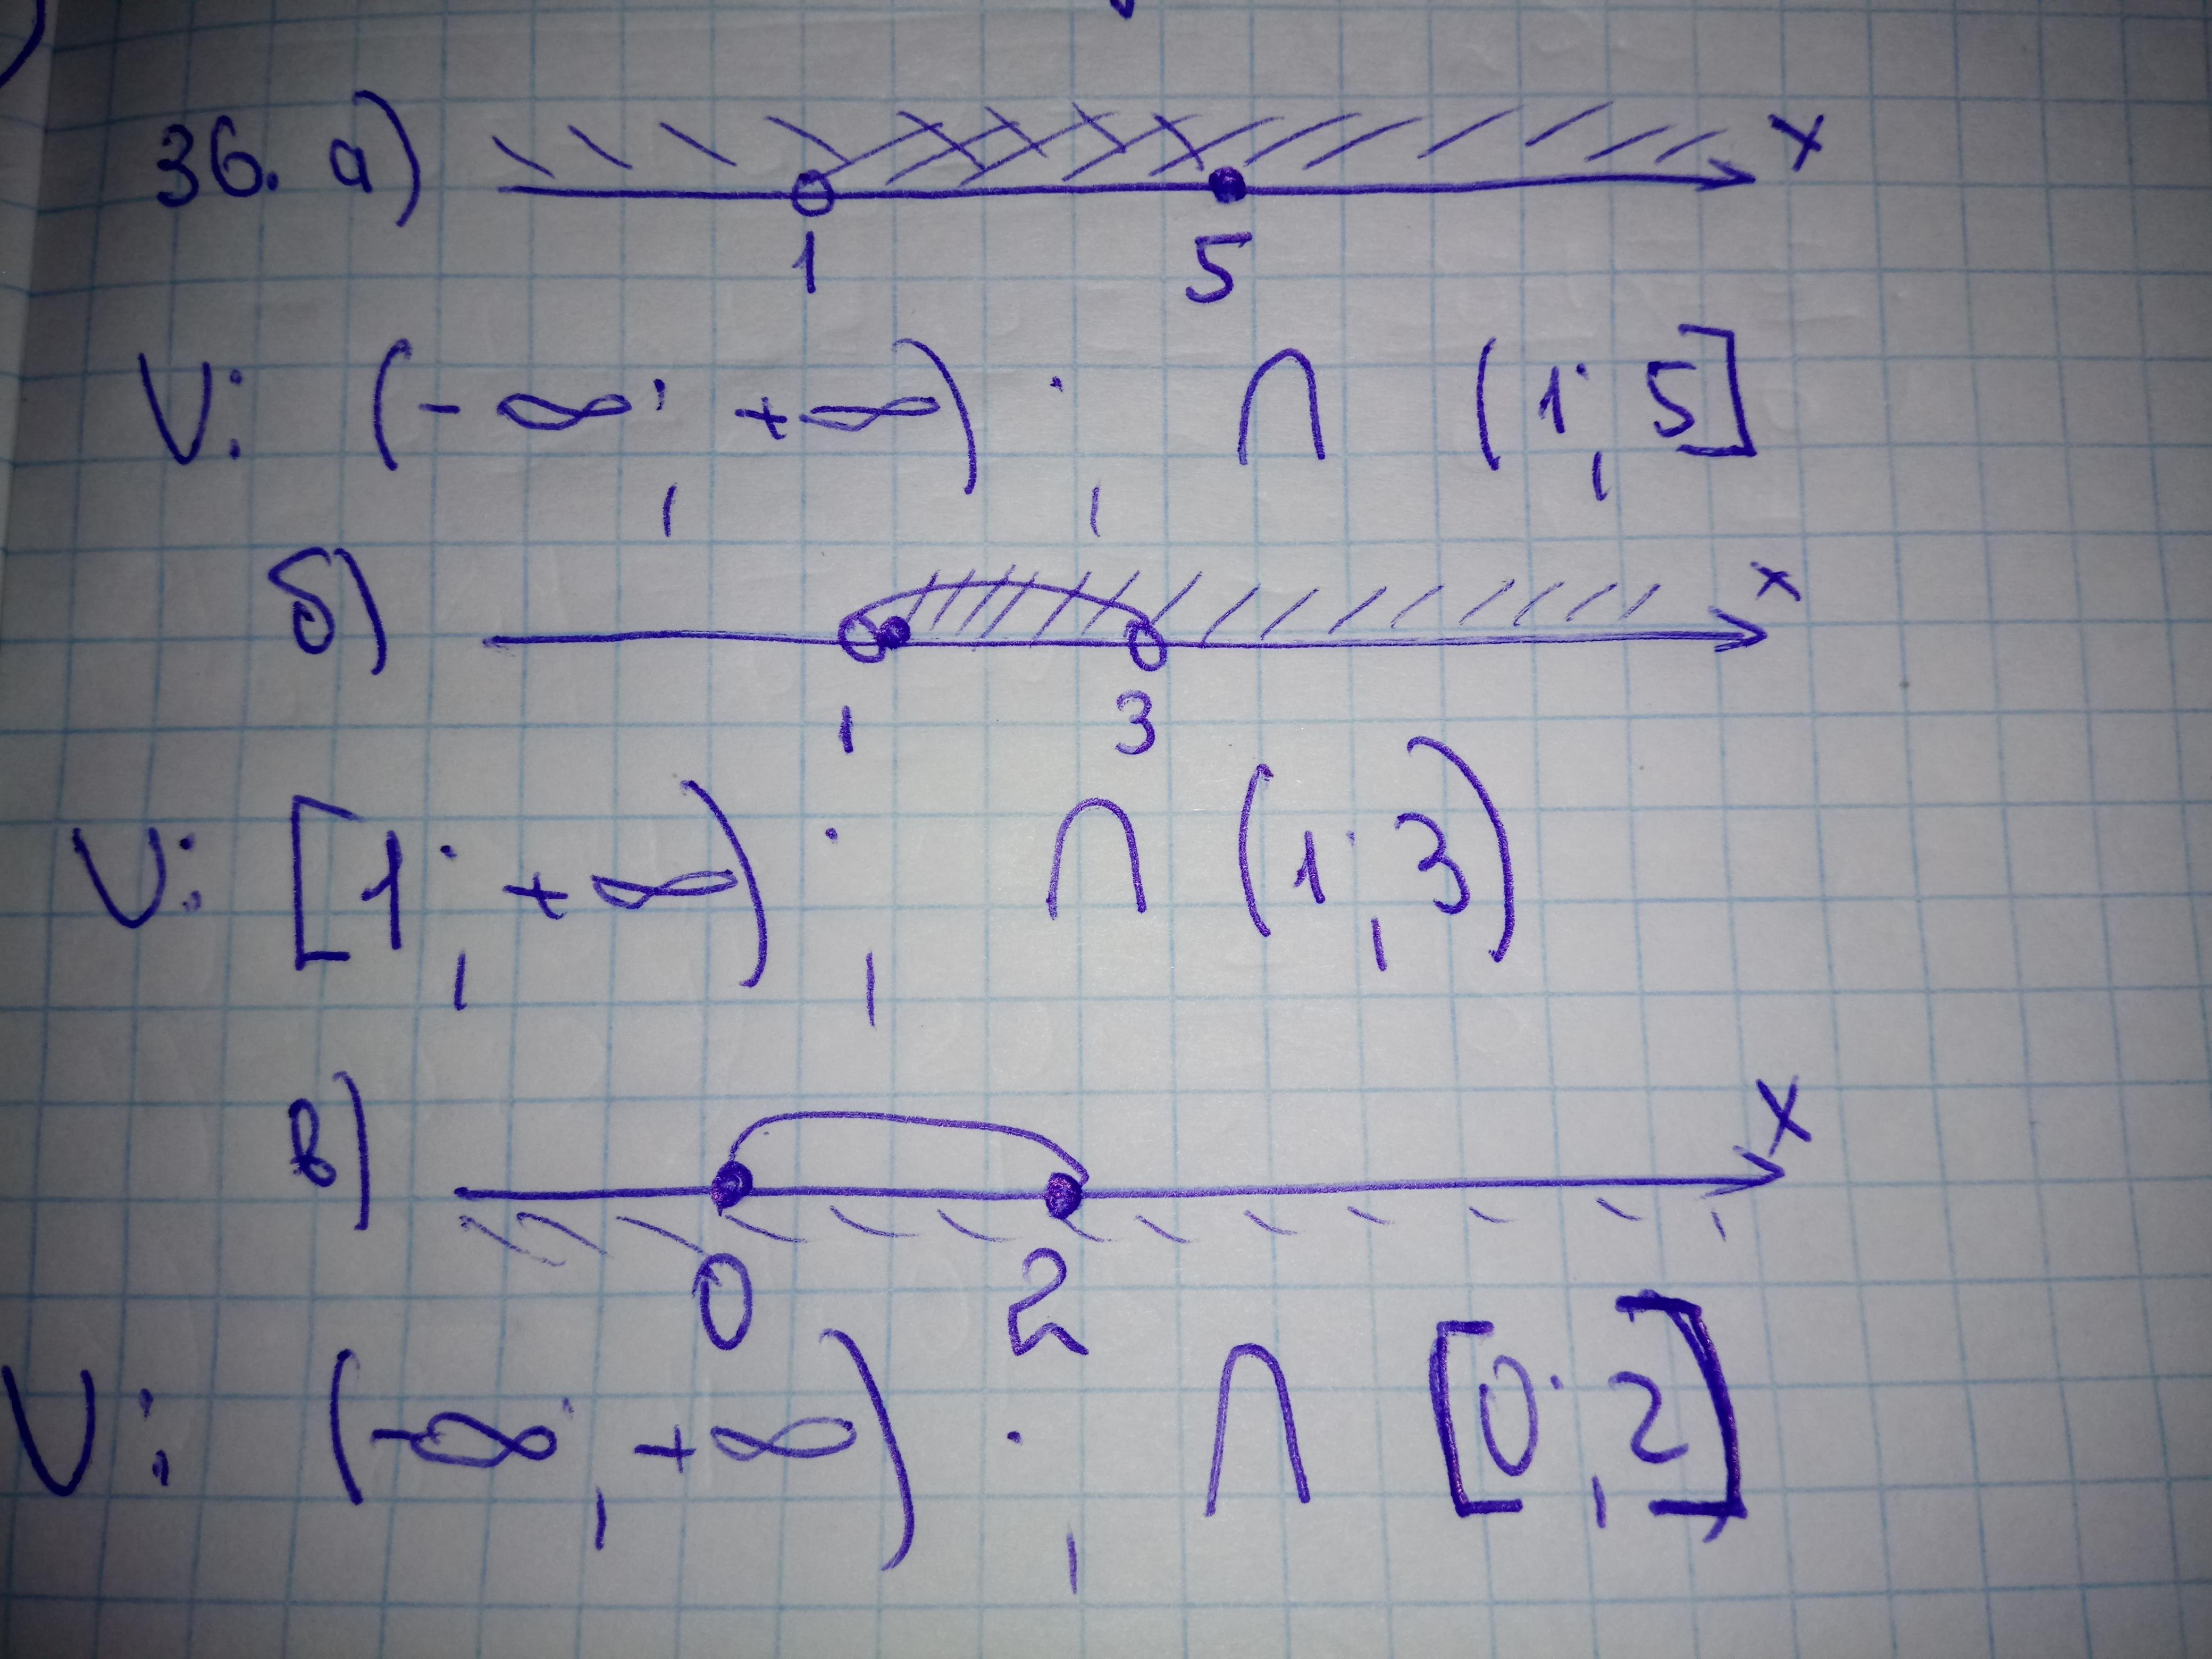 36. а) x
1 5
∪: (-∞; +∞); ∩ (1; 5]
б) x
1 3
∪: [1; +∞); ∩ (1; 3)
в) x
0 2
∪: (-∞; +∞); ∩ [0; 2]